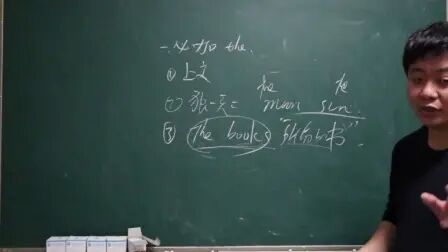 一. 必加 the.
① 上文
the the
② 独一无二 moon sun
③ The books "所有的书"